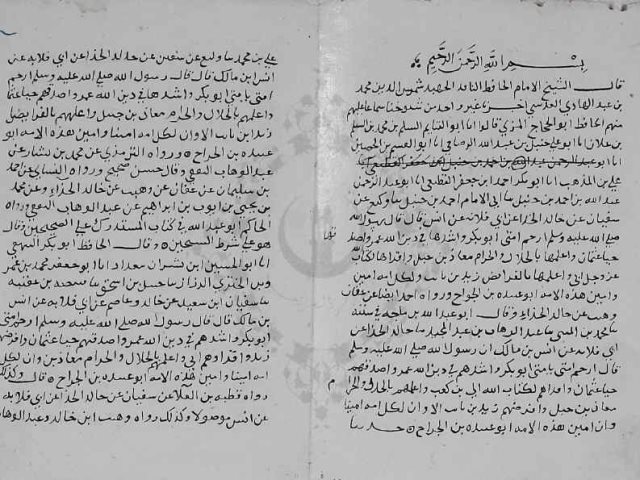 بسم الله الرحمن الرحيم
قال الشيخ الامام الحافظ الناقد الجهبذ شمس الدين محمد
بن عبد الهادي المقدسي اخبرنا غير واحد من شيوخنا سماعا عليهم
منهم الحافظ ابو الحجاج المزي قالوا انا ابو الغنايم المسلم بن محمد بن المسلم
بن علان انا ابو علي حنبل بن عبد الله الرصافي انا ابو القسم بن الحصين
انا ابو
علي بن المذهب انا ابو بكر احمد بن جعفر القطيعي انا ابو عبد الرحمن
عبد الله بن احمد بن حنبل حدثني ابي الامام احمد بن حنبل ثنا وكيع عن
سفيان عن خالد الحذا عن ابي قلابه عن انس قال قال رسول الله
صلى الله عليه وسلم ارحم امتي ابو بكر واشدها في دين الله عمر واصدقها
حيا عثمان واعلمها بالحلال والحرام معاذ بن جبل واقراها لكتاب الله
عز وجل ابي واعلمها بالفرايض زيد بن ثابت ولكل امه امين
وامين هذه الامه ابو عبيده بن الجراح ورواه احمد ايضا عن عفان
وهب عن خالد الحذاء وقال ابو عبد الله بن ماجه في سننه
ثنا محمد بن المثنى ثنا عبد الوهاب بن عبد المجيد ثنا خالد الحذا عن
ابي قلابه عن انس بن مالك ان رسول الله صلى الله عليه وسلم
قال ارحم امتي بامتي ابو بكر واشدهم في دين الله عمر واصدقهم
حيا عثمان واقراهم لكتاب الله ابي بن كعب واعلمهم بالحلال والحرام
معاذ بن جبل وافرضهم زيد بن ثابت الا وان لكل امه امينا
وان امين هذه الامه ابو عبيده بن الجراح حدثنا
علي بن محمد ثنا وكيع عن سفين عن خالد الحذا عن ابي قلابه عن
انس بن مالك قال قال رسول الله صلى الله عليه وسلم ارحم
امتي بامتي ابو بكر واشدها في دين الله عمر واصدقهم حيا عثمان
واعلمهم بالحلال والحرام معاذ بن جبل واعلمهم بالفرايض
زيد بن ثابت الا وان لكل امه امينا وامين هذه الامه ابو
عبيده بن الجراح ورواه الترمذي عن محمد بن بشار عن
عبد الوهاب الثقفي وقال حسن صحيح ورواه النساي عن محمد
بن سليمان عن عفان عن وهيب عن خالد الحذاء وعن محمد
بن يحيى بن ايوب بن ابراهيم عن عبد الوهاب الثقفي ورواه
الحاكم ابو عبد الله في كتاب المستدرك على الصحيحين وقال
هو على شرط الشيخين وقال الحافظ ابو بكر البيهقي
انا ابو الحسين ابن بشران ببغداد انا ابو جعفر محمد بن عمرو
بن البختري الرزاز ثنا حنبل بن اسحق ثنا قبيصه بن عقبه
ثنا سفيان ابن سعيد عن خالد وعاصم عن ابي قلابه عن انس
بن مالك قال قال رسول الله صلى الله عليه وسلم ارحم امتي
ابو بكر واشدهم في دين الله عمر واصدقهم حيا عثمان وافرضهم
زيد واقراهم ابي واعلمهم بالحلال والحرام معاذ بن وان لكل
امه امينا وامين هذه الامه ابو عبيده بن الجراح قال وكذلك
رواه قطبه بن العلا عن سفيان عن خالد الحذا عن ابي قلابه
عن انس موصولا وكذلك رواه وهيب ابن خالد وعبد الوهاب